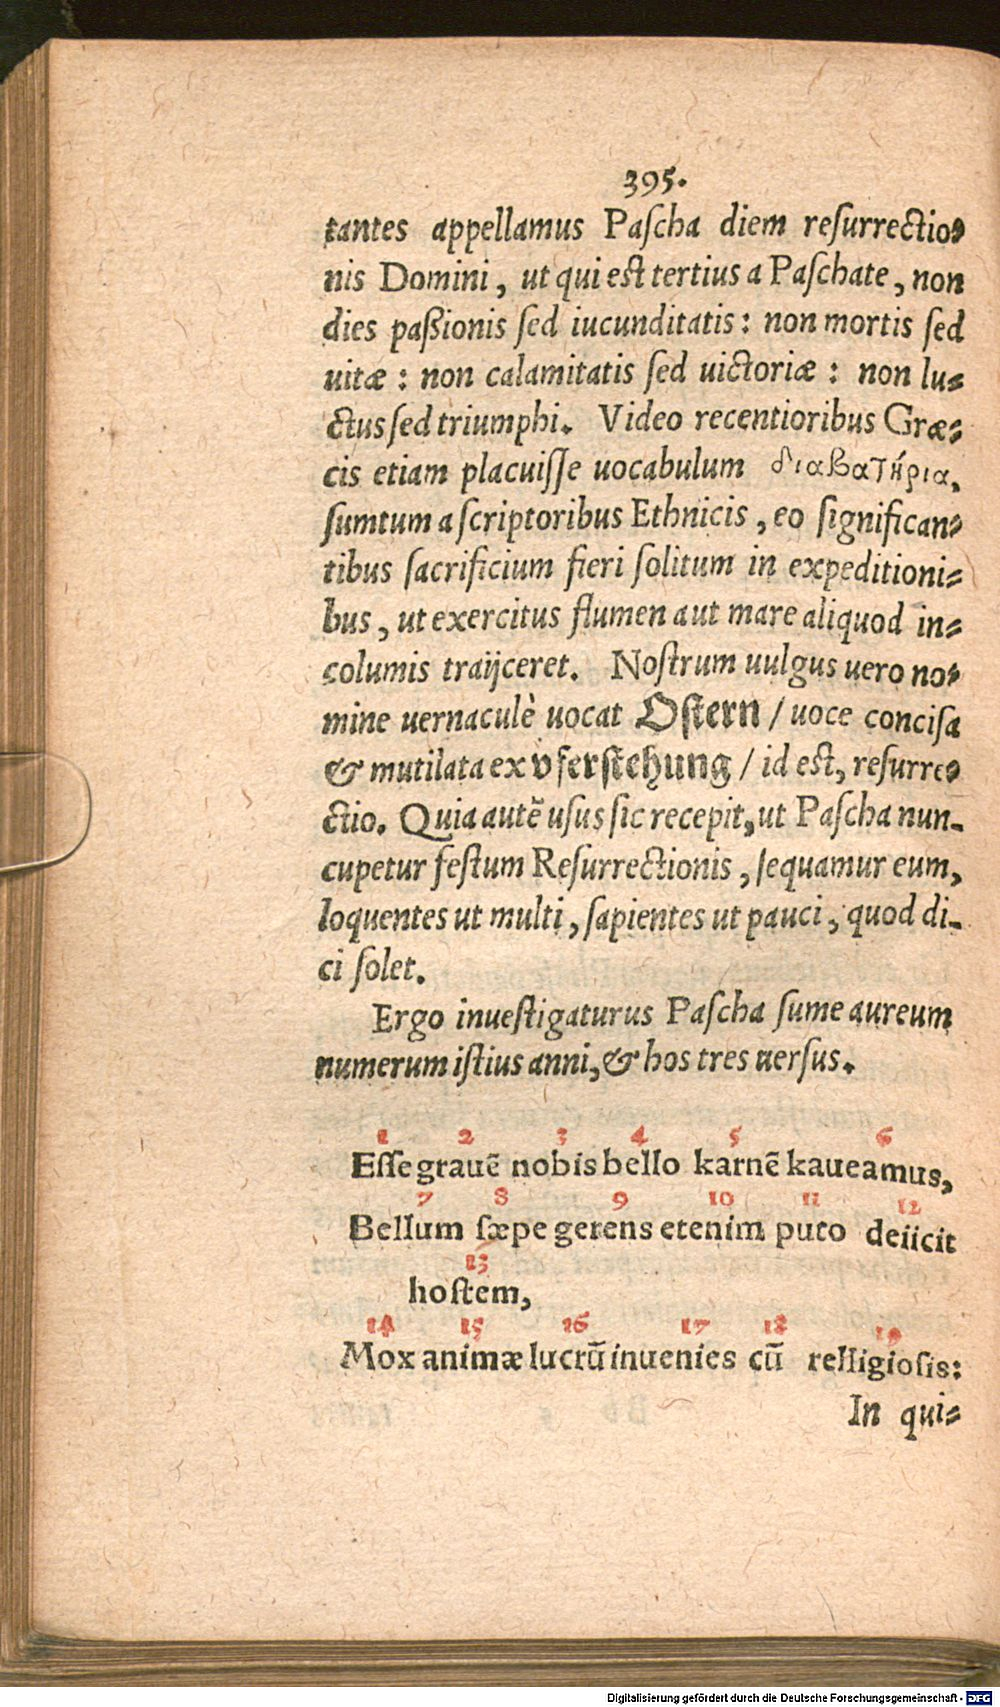 395.
tantes appellamus Paſcha diem reſurrectio⸗
nis Domini, ut qui est tertius a Paſchate, non
dies paßionis ſed iucunditatis: non mortis ſed
uitæ: non calamitatis ſed uictoriæ: non lu⸗
ctus ſed triumphi. Video recentioribus Græ⸗
cis etiam placuiſſe uocabulum διαβατήρια,
ſumtum a ſcriptoribus Ethnicis, eo ſignifican⸗
tibus ſacrificium fieri ſolitum in expeditioni⸗
bus, ut exercitus flumen aut mare aliquod in⸗
columis traijceret. Noſtrum uulgus uero no⸗
mine uernaculè uocat Oſtern / uoce conciſa
& mutilata ex vferſtehung / id est, reſurre⸗
ctio. Quia autē uſus ſic recepit, ut Paſcha nun-
cupetur feſtum Reſurrectionis, ſequamur eum,
loquentes ut multi, ſapientes ut pauci, quod di-
ci ſolet.
Ergo inueſtigaturus Paſcha ſume aureum
numerum iſtius anni, & hos tres uerſus.
1 2 3 4 5 6
Eſſe grauē nobis bello karnē kaueamus,
7 8 9 10 11 12
Bellum ſæpe gerens etenim puto deiicit
13
hoſtem,
14 15 16 17 18 19
Mox animæ lucrū inuenies cū relligioſis:
In qui⸗
Digitalisierung gefördert durch die Deutsche Forschungsgemeinschaft - DFG